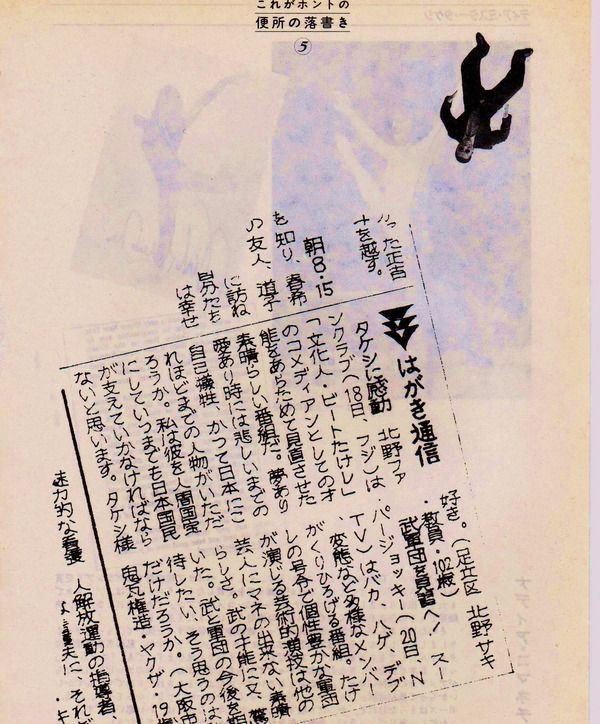 これがホントの
便所の落書き
⑤
った正吉
十を越す。
朝8・15
を知り、春希
の友人、道子
に訪ね
自分たち
は幸せ
はがき通信
タケシに感動 北野ファ
ンクラブ(18日、フジ)は
「文化人・ビートたけし」
のコメディアンとしての才
能をあらためて見直させた
素晴らしい番組だ。夢あり
愛あり時には悲しいまでの
自己犠牲、かつて日本にこ
れほどまでの人物がいただ
ろうか。私は彼を人間国宝
にしていつまでも日本国民
が支えていかなければなら
ないと思います。タケシ様
好き。(足立区 北野サキ
・教員・102歳)
武軍団を見習へ! スー
パージョッキー(20日、N
TV)はバカ、ハゲ、デブ
、変態など多様なメンバー
がくりひろげる番組。たけ
しの号令で個性豊かな軍団
が演じる芸術的演技は他の
芸人にマネの出来ない素晴
らしさ。武の才能に又、驚
いた。武と軍団の今後を期
待したい。そう思うのは
だけだろうか。(大阪市
鬼瓦権造・ヤクザ・19歳
力的な看護
人解放運動の指導者、